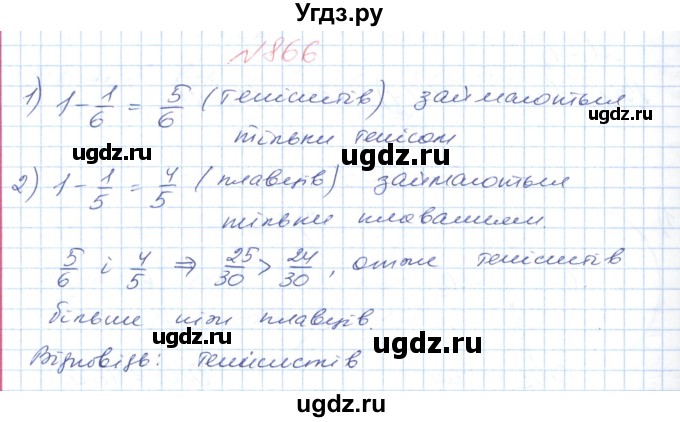 Угдз.ру
№866
1) 1 - 1/6 = 5/6 (тенісистів) займаються
тільки тенісом
ugdz.ru ugdz.ru
2) 1 - 1/5 = 4/5 (плавців) займаються
тільки плаванням.
ugdz.ru
5/6 і 4/5 ⇒ 25/30 > 24/30, отже тенісистів
більше ніж плавців.
ugdz.ru ugdz.ru
Відповідь: тенісистів
ugdz.ru